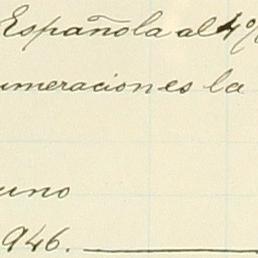 Española al 4%
umeraciones la
uno
946.